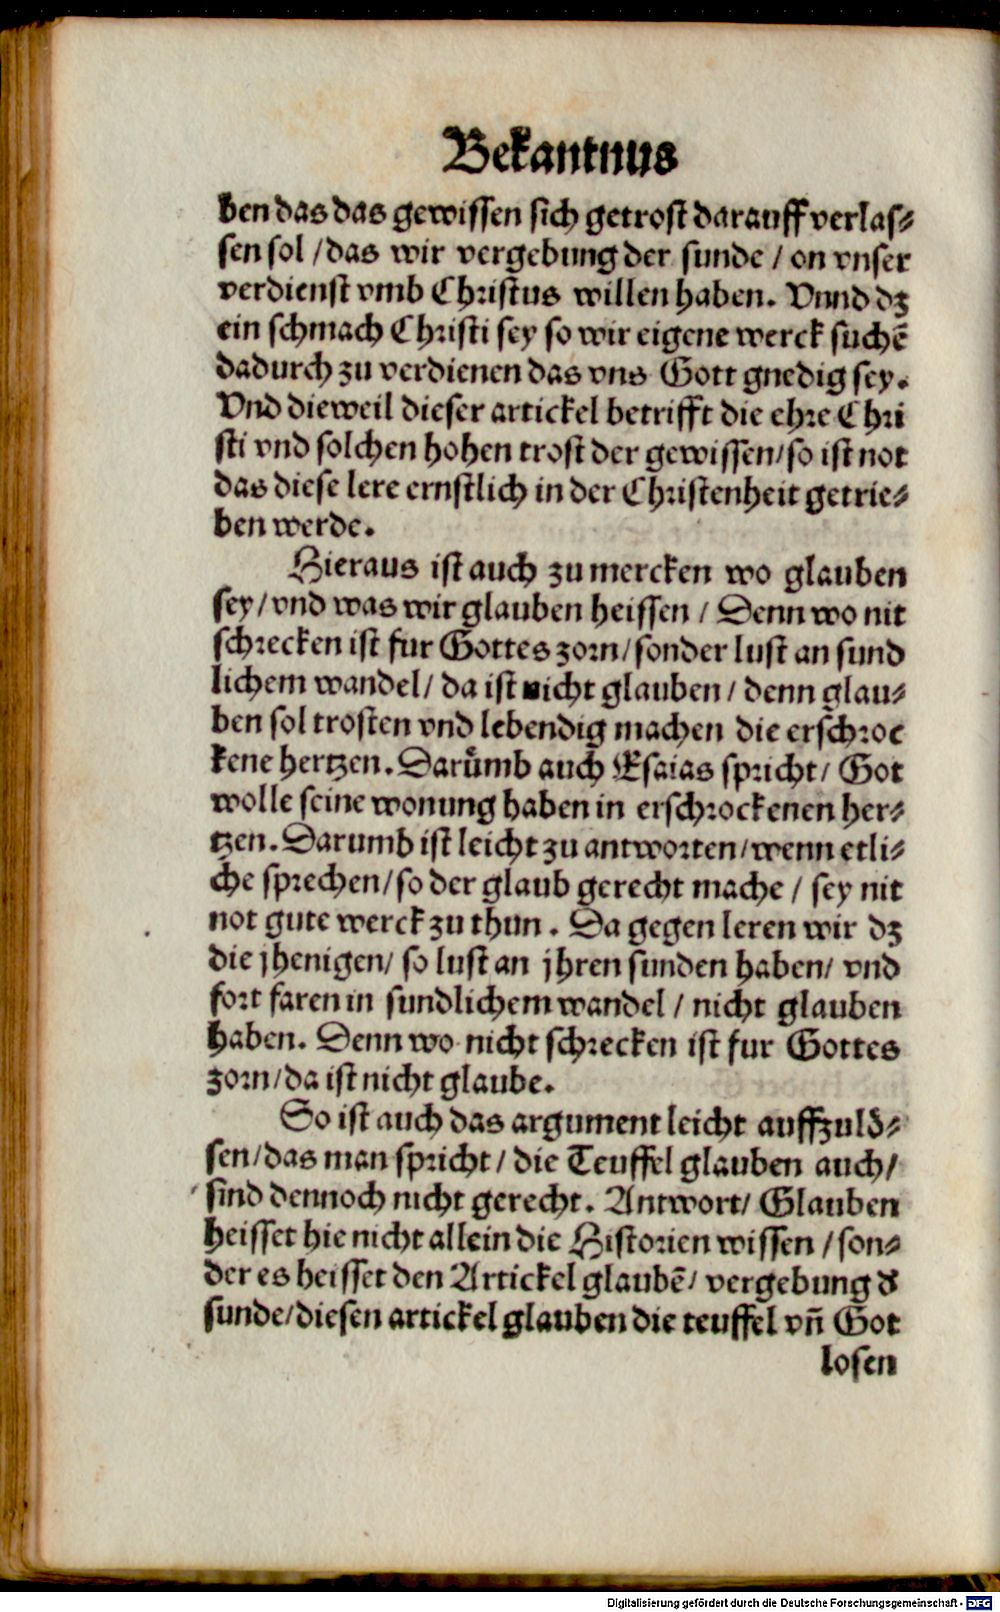 Bekantnus
ben das das gewissen sich getrost darauff verlas⸗
sen sol / das wir vergebung der sunde / on vnser
verdienst vmb Christus willen haben. Vnnd dz
ein schmach Christi sey so wir eigene werck suchē
dadurch zu verdienen das vns Gott gnedig sey.
Vnd dieweil dieser artickel betrifft die ehre Chri
sti vnd solchen hohen trost der gewissen / so ist not
das diese lere ernstlich in der Christenheit getrie⸗
ben werde.
Hieraus ist auch zu mercken wo glauben
sey / vnd was wir glauben heissen / Denn wo nit
schrecken ist fur Gottes zorn / sonder lust an sund
lichem wandel / da ist nicht glauben / denn glau⸗
ben sol trosten vnd lebendig machen die erschroc
kene hertzen. Darůmb auch Esaias spricht / Got
wolle seine wonung haben in erschrockenen her⸗
tzen. Darumb ist leicht zu antworten / wenn etli⸗
che sprechen / so der glaub gerecht mache / sey nit
not gute werck zu thun. Da gegen leren wir dz
die jhenigen / so lust an jhren sunden haben / vnd
fort faren in sundlichem wandel / nicht glauben
haben. Denn wo nicht schrecken ist fur Gottes
zorn / da ist nicht glaube.
So ist auch das argument leicht auffzulö⸗
sen / das man spricht / die Teuffel glauben auch /
sind dennoch nicht gerecht. Antwort / Glauben
heisset hie nicht allein die Historien wissen / son⸗
der es heisset den Artickel glaubē / vergebung d̕
sunde / diesen artickel glauben die teuffel vñ Got
losen
Digitalisierung gefördert durch die Deutsche Forschungsgemeinschaft - DFG